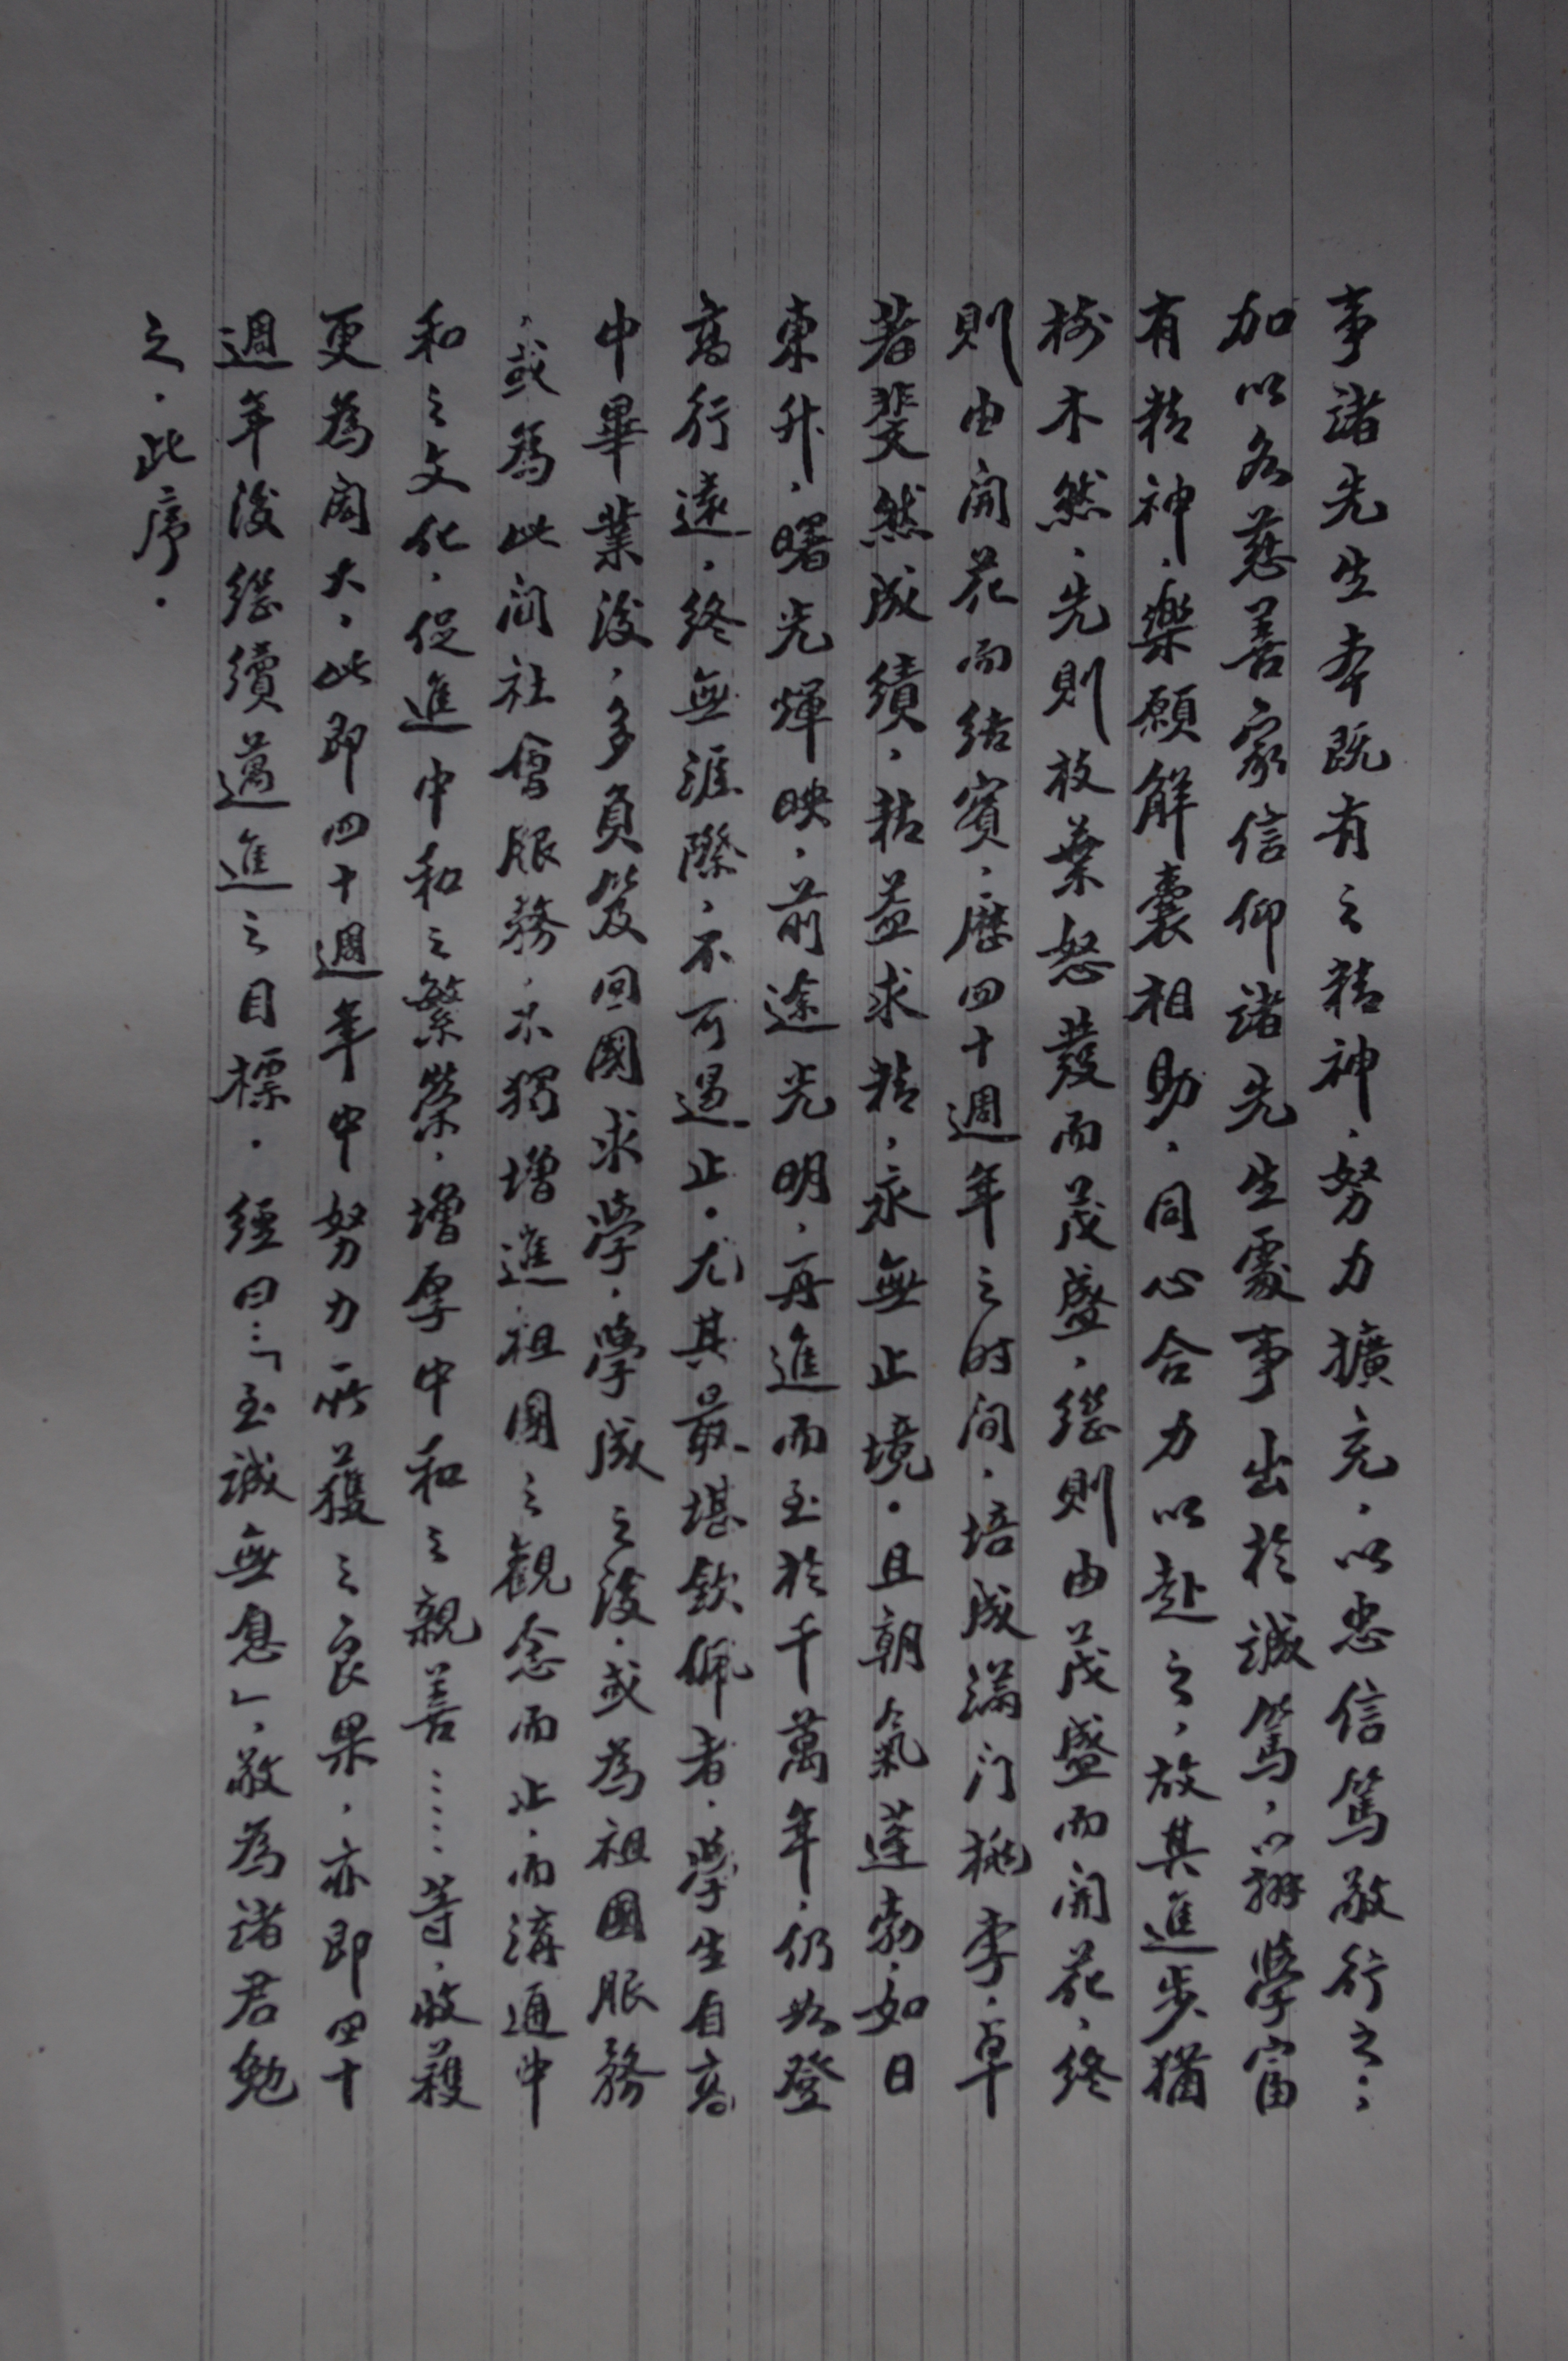 事諸先生本既有之精神，努力擴充，以忠信篤敬行之；
加以各慈善家信仰諸先生處事出於誠篤，以辦學富
有精神，樂願解囊相助，同心合力以赴之，故其進步猶
樹木然，先則枝葉怒發而茂盛，繼則由茂盛而開花，終
則由開花而結實，歷四十週年之时间，培成满门桃李，卓
著斐然成績，精益求精，永無止境。且朝氣蓬勃，如日
東升，曙光輝映，前途光明，再進而至於千萬年，仍然登
高行遠，終無涯際，不可遏止。尤其最堪欽佩者，學生自高
中畢業後，多負笈回國求學，學成之後，或為祖國服務
，或為此间社會服務，不獨增進祖國之觀念而止，而溝通中
和之文化，促進中和之繁榮，增厚中和之親善……等，收穫
更為闳大，此即四十週年中努力所獲之良果，亦即四十
週年後繼續邁進之目標。經曰：「至誠無息」，敬為諸君勉
之，此序。